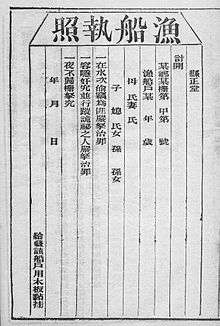 漁船執照
縣正堂
計開
某某柵第 甲第 號
漁船戶某 年 歲
母氏妻氏
子 媳氏女 孫 孫女
一在水次偷竊為匪嚴拏治罪
一容隱奸宄並行蹤詭秘之人嚴拏治罪
一夜不歸柵拏究
年 月 日
給發該船戶用木板黏挂